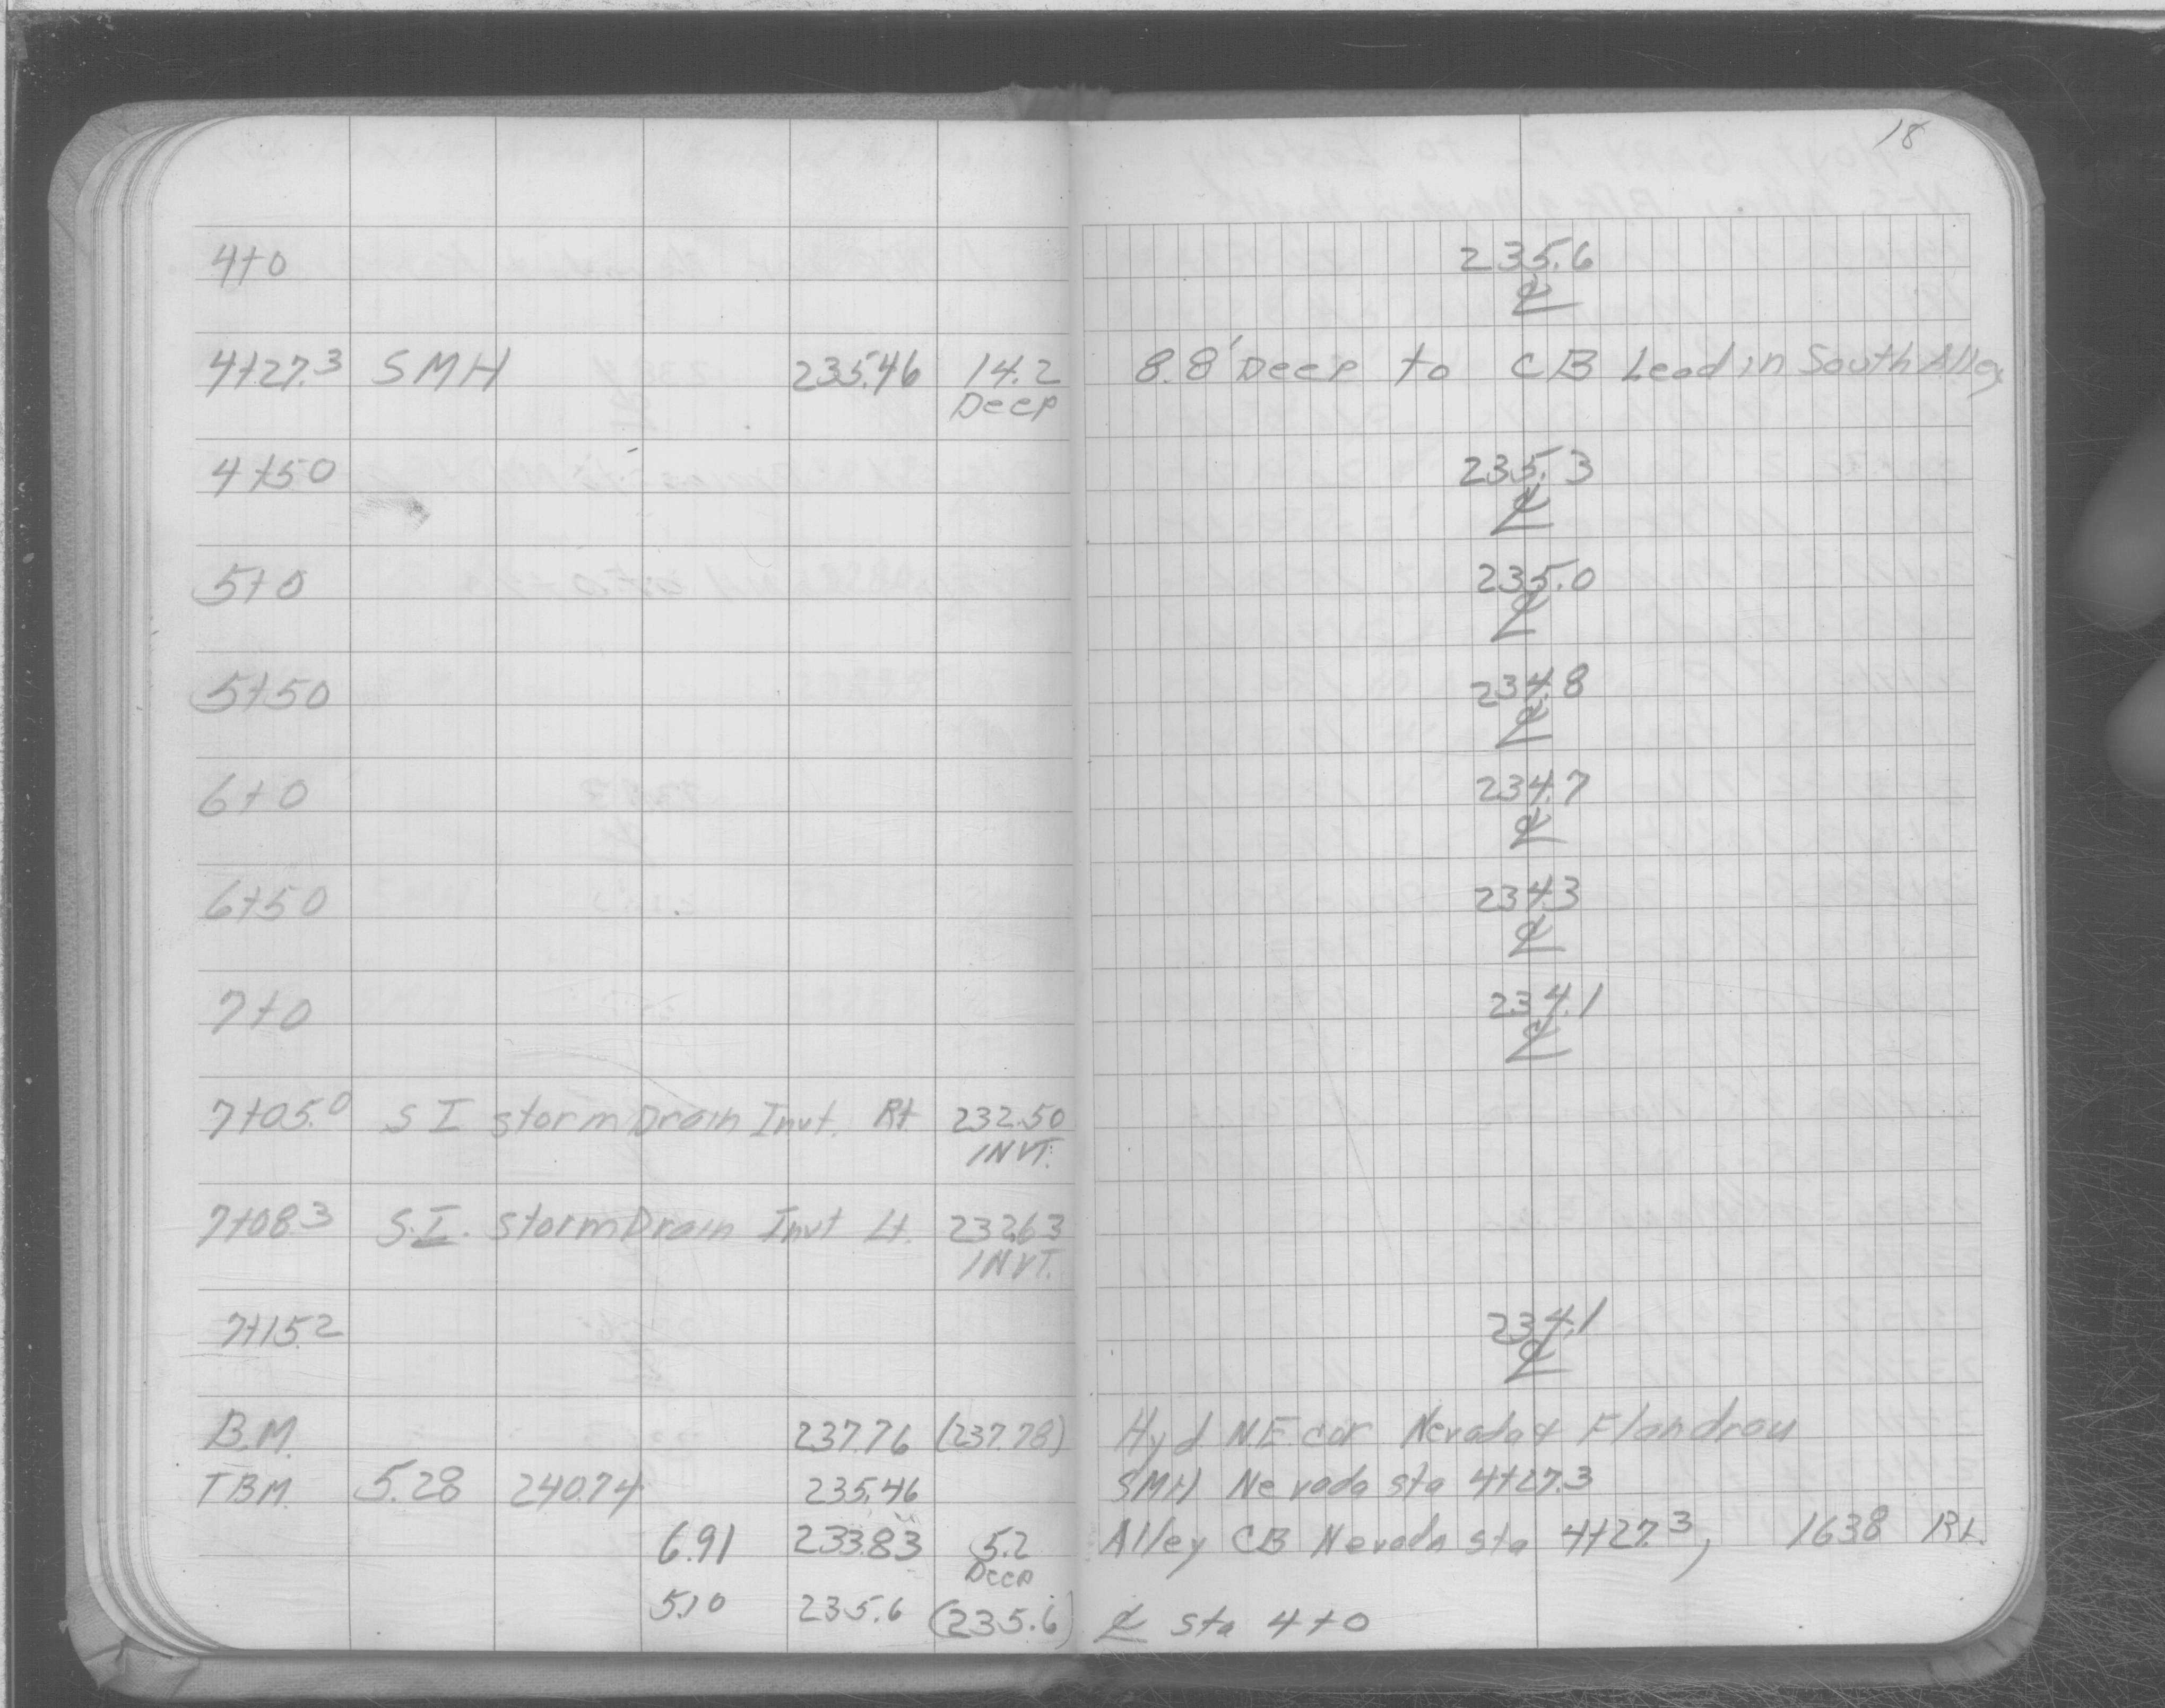 18
4+0 235.6
℄
4+27.3 SMH 235.46 14.2 8.8' Deep to CB Lead in South Alley
Deep
4+50 235.3
℄
5+0 235.0
℄
5+50 234.8
℄
6+0 234.7
℄
6+50 234.3
℄
7+0 234.1
℄
7+05.0 S I storm Drain Invt. Rt 232.50
INVT.
7+08.3 S.I. storm Drain Invt Lt. 232.63
INVT.
7+15.2 234.1
℄
B.M. 237.76 (237.78) Hyd NE cor Nevada & Flandrau
TBM. 5.28 240.74 235.46 SMH Nevada sta 4+27.3
6.91 233.83 5.2 Alley CB Nevada sta 4+27.3, 1638 Rt.
Deep
5.10 235.6 (235.6) ℄ sta 4+0